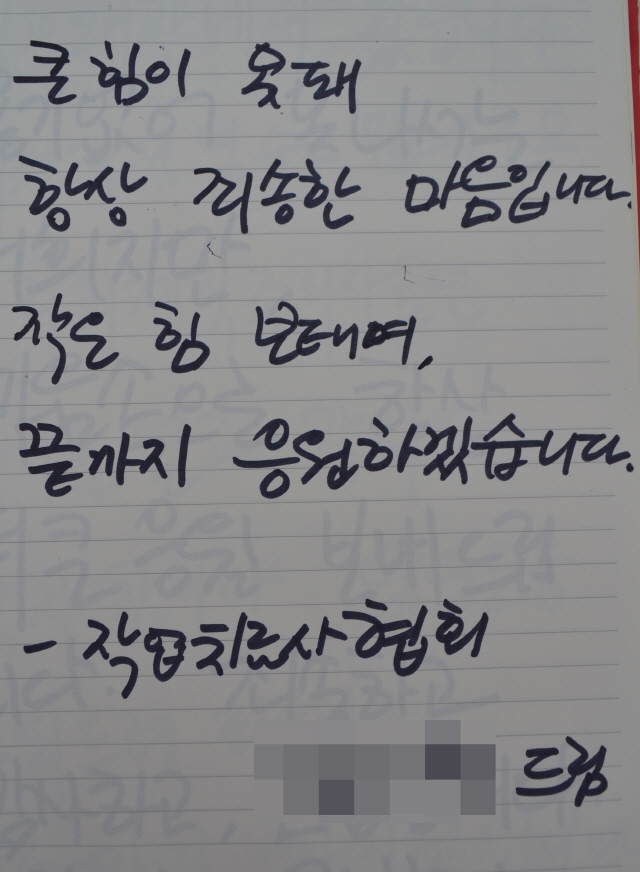 큰 힘이 못돼
항상 죄송한 마음입니다.
작은 힘 보태며,
끝까지 응원하겠습니다.
- 작업치료사협회
드림